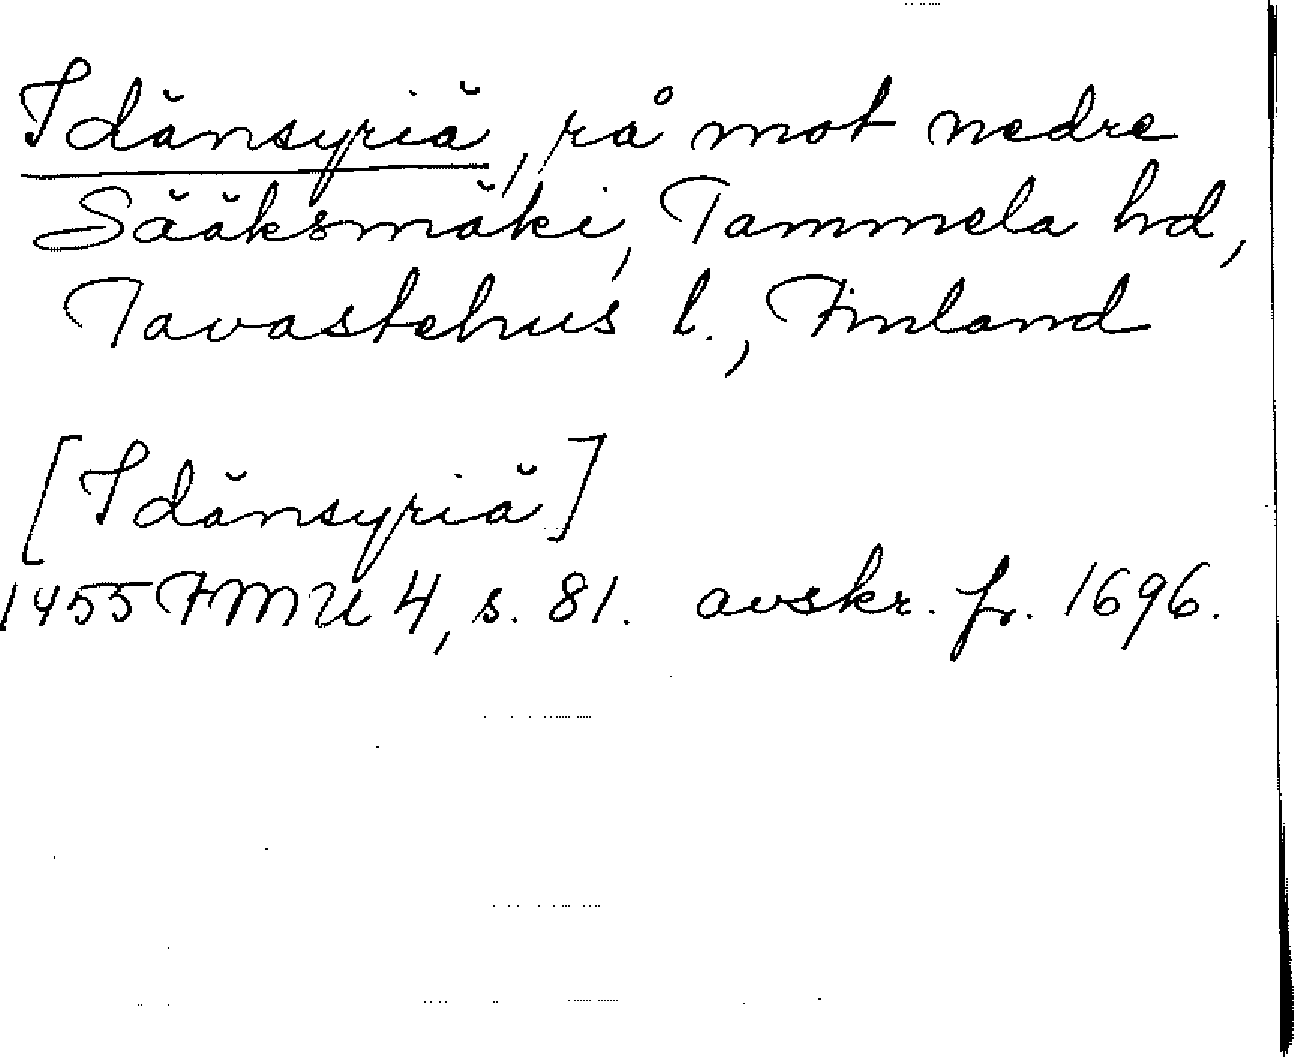 Idänsyriä, rå mot nedre
Sääksmäki, Tammela hd,
Tavastehus l., Finland
[Idänsyriä]
1455 FMU 4, s. 81. avskr. fr. 1696.